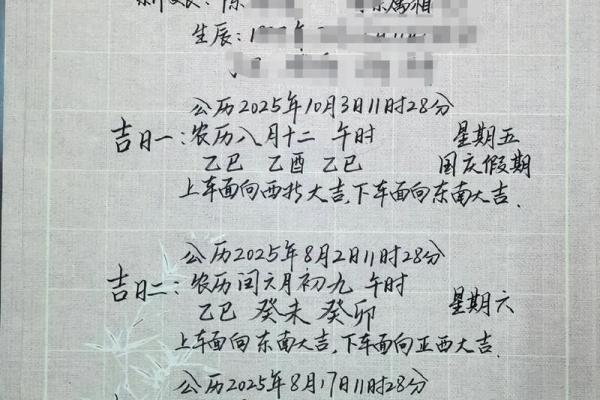 生辰:
公历2025年10月3日11时28分
吉日一:农历八月十二 午时 星期五
乙巳 乙酉 乙巳 国庆假期
上车面向西 大吉,下车面向东南大吉.
公历2025年8月2日11时28分
吉日二:农历闰六月初九 午时
乙巳 癸未 癸卯 星期六
上车面向东南大吉,下车面向正西大吉.
公历2025年8月17日11时28分